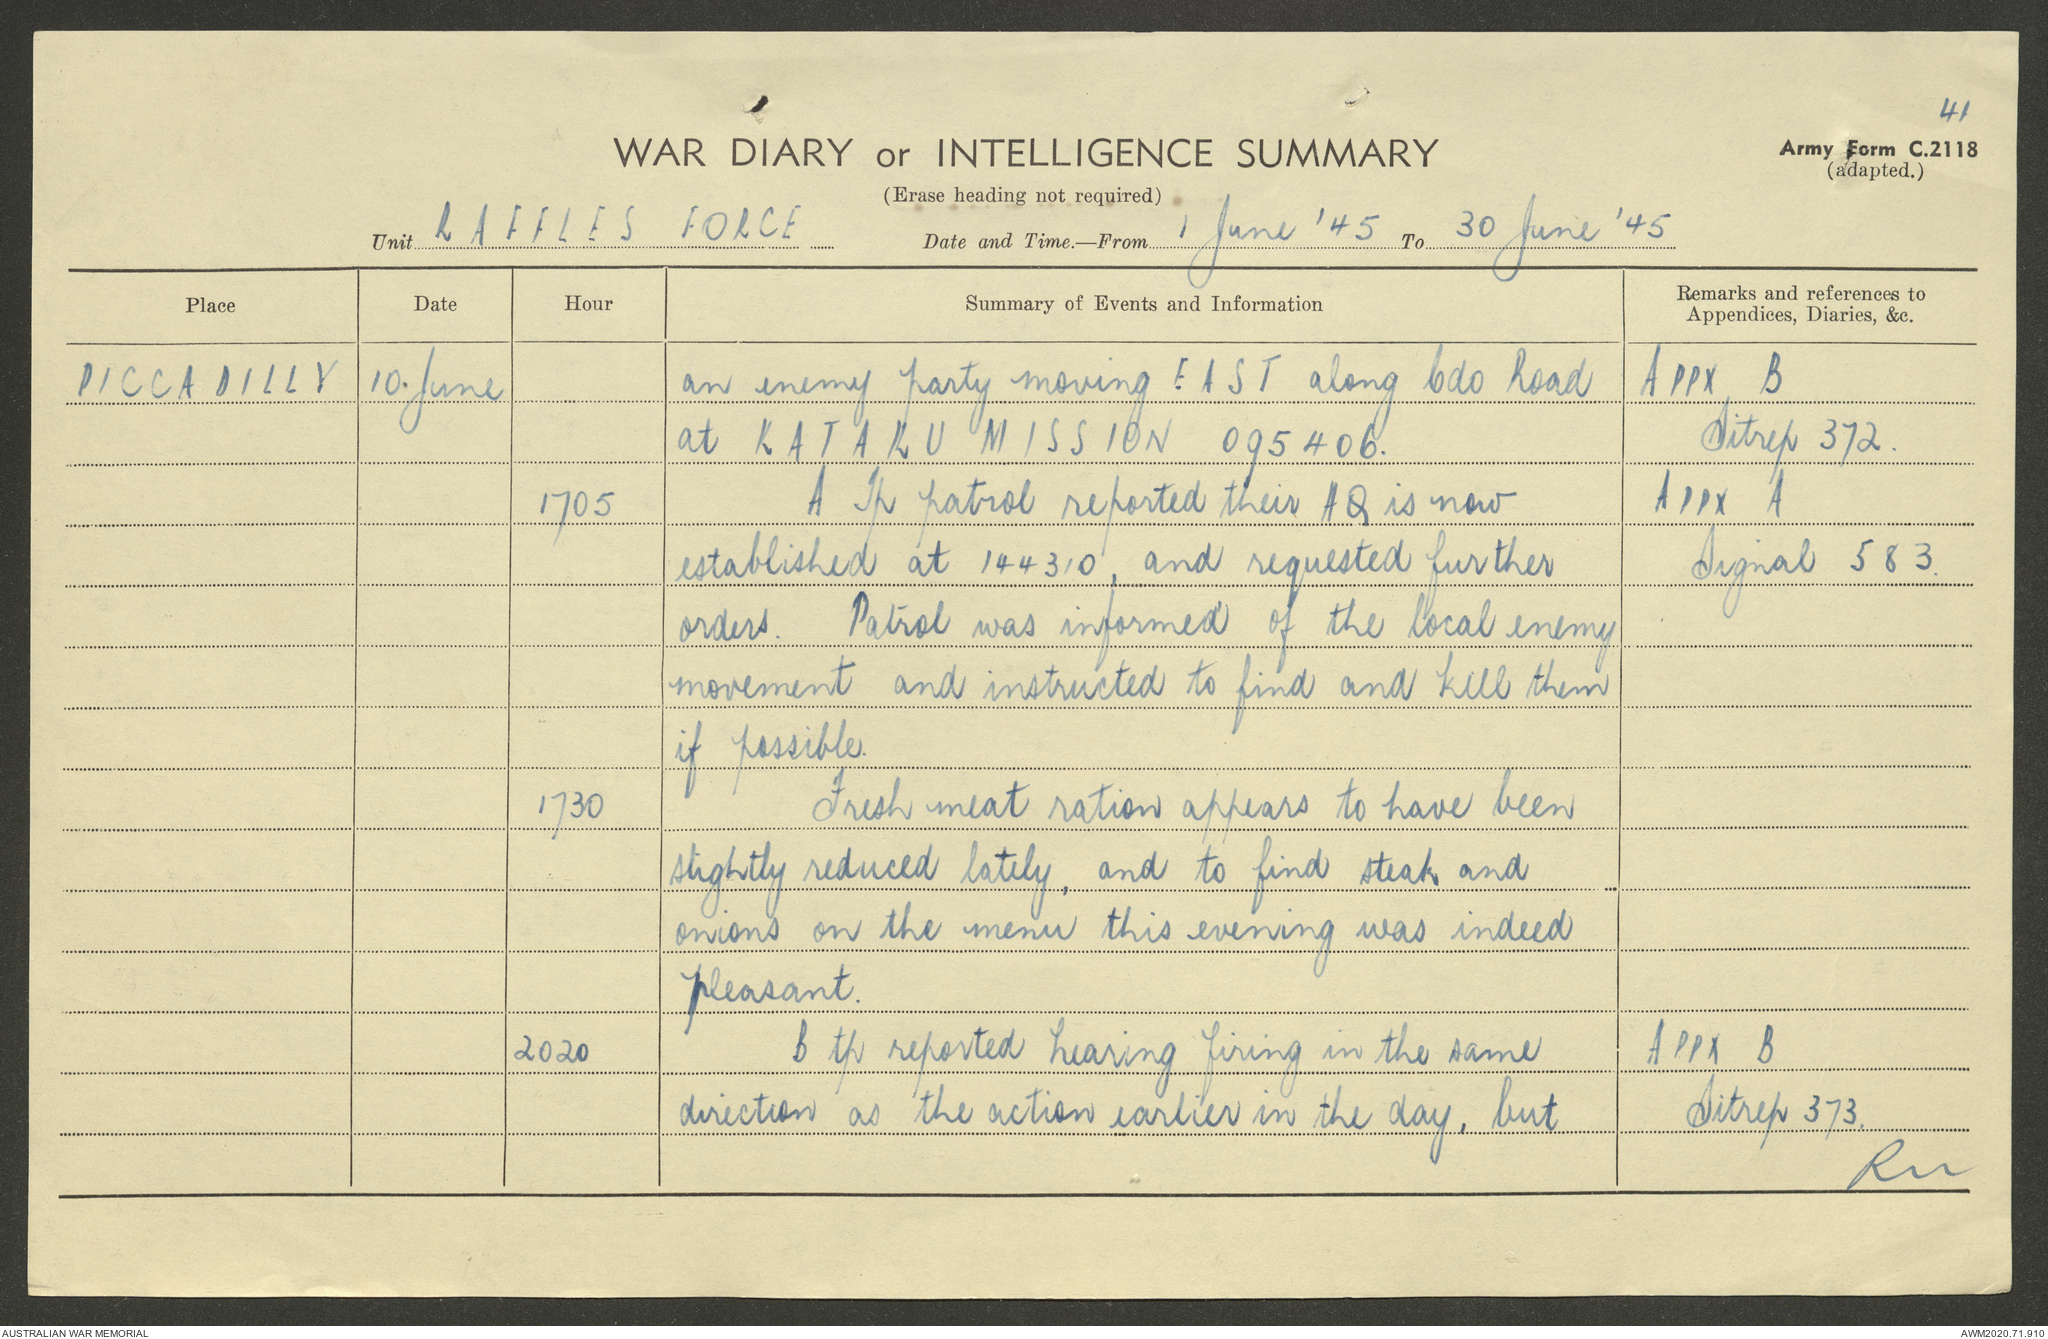 41
WAR DIARY or INTELLIGENCE SUMMARY
Army Form C.2118
(adapted.)
(Erase heading not required)
Unit RAFFLES FORCE Date and Time.—From 1 June '45 To 30 June '45
Place Date Hour Summary of Events and Information Remarks and references to Appendices, Diaries, &c.
PICCADILLY 10. June an enemy party moving EAST along Cdo Road APPX B
at KATAKU MISSION 095406. Sitrep 372.
1705 A Tp patrol reported their HQ is now APPX A
established at 144310, and requested further Signal 583.
orders. Patrol was informed of the local enemy
movement and instructed to find and kill them
if possible.
1730 Fresh meat ration appears to have been
slightly reduced lately, and to find steak and
onions on the menu this evening was indeed
pleasant.
2020 B tp reported hearing firing in the same APPX B
direction as the action earlier in the day, but Sitrep 373.
AUSTRALIAN WAR MEMORIAL
AWM2020.71.910